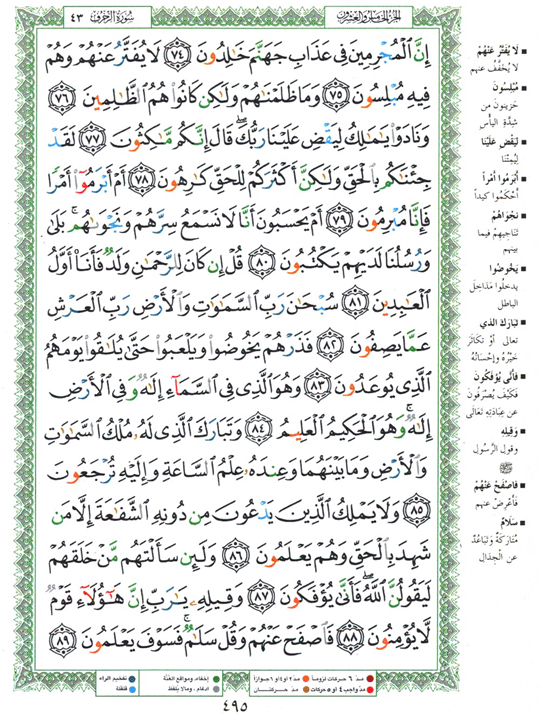 ٤٣
سُورَةُ الزُّخْرُفِ
الجُزْءُ الخَامِسُ وَالعِشْرُونَ
إِنَّ ٱلْمُجْرِمِينَ فِى عَذَابِ جَهَنَّمَ خَـٰلِدُونَ ٧٤ لَا يُفَتَّرُ عَنْهُمْ وَهُمْ
فِيهِ مُبْلِسُونَ ٧٥ وَمَا ظَلَمْنَـٰهُمْ وَلَـٰكِن كَانُوا۟ هُمُ ٱلظَّـٰلِمِينَ ٧٦
وَنَادَوْا۟ يَـٰمَـٰلِكُ لِيَقْضِ عَلَيْنَا رَبُّكَ ۖ قَالَ إِنَّكُم مَّـٰكِثُونَ ٧٧ لَقَدْ
جِئْنَـٰكُم بِٱلْحَقِّ وَلَـٰكِنَّ أَكْثَرَكُمْ لِلْحَقِّ كَـٰرِهُونَ ٧٨ أَمْ أَبْرَمُوٓا۟ أَمْرًا
فَإِنَّا مُبْرِمُونَ ٧٩ أَمْ يَحْسَبُونَ أَنَّا لَا نَسْمَعُ سِرَّهُمْ وَنَجْوَىٰهُم ۚ بَلَىٰ
وَرُسُلُنَا لَدَيْهِمْ يَكْتُبُونَ ٨٠ قُلْ إِن كَانَ لِلرَّحْمَـٰنِ وَلَدٌ فَأَنَا۠ أَوَّلُ
ٱلْعَـٰبِدِينَ ٨١ سُبْحَـٰنَ رَبِّ ٱلسَّمَـٰوَٰتِ وَٱلْأَرْضِ رَبِّ ٱلْعَرْشِ
عَمَّا يَصِفُونَ ٨٢ فَذَرْهُمْ يَخُوضُوا۟ وَيَلْعَبُوا۟ حَتَّىٰ يُلَـٰقُوا۟ يَوْمَهُمُ
ٱلَّذِى يُوعَدُونَ ٨٣ وَهُوَ ٱلَّذِى فِى ٱلسَّمَآءِ إِلَـٰهٌ وَفِى ٱلْأَرْضِ
إِلَـٰهٌ ۚ وَهُوَ ٱلْحَكِيمُ ٱلْعَلِيمُ ٨٤ وَتَبَارَكَ ٱلَّذِى لَهُۥ مُلْكُ ٱلسَّمَـٰوَٰتِ
وَٱلْأَرْضِ وَمَا بَيْنَهُمَا وَعِندَهُۥ عِلْمُ ٱلسَّاعَةِ وَإِلَيْهِ تُرْجَعُونَ
٨٥ وَلَا يَمْلِكُ ٱلَّذِينَ يَدْعُونَ مِن دُونِهِ ٱلشَّفَـٰعَةَ إِلَّا مَن
شَهِدَ بِٱلْحَقِّ وَهُمْ يَعْلَمُونَ ٨٦ وَلَئِن سَأَلْتَهُم مَّنْ خَلَقَهُمْ
لَيَقُولُنَّ ٱللَّهُ ۖ فَأَنَّىٰ يُؤْفَكُونَ ٨٧ وَقِيلِهِۦ يَـٰرَبِّ إِنَّ هَـٰٓؤُلَآءِ قَوْمٌ
لَّا يُؤْمِنُونَ ٨٨ فَٱصْفَحْ عَنْهُمْ وَقُلْ سَلَـٰمٌ ۚ فَسَوْفَ يَعْلَمُونَ ٨٩
■ لَا يُفَتَّرُ عَنْهُمْ
لا يُخَفَّفُ عنهم
■ مُبْلِسُونَ
حَزِينُونَ من
شِدَّةِ اليأسِ
■ لِيَقْضِ عَلَيْنَا
لِيُمِتْنَا
■ أَبْرَمُوا أَمْراً
أَحْكَمُوا كَيداً
■ نَجْوَاهُمْ
تَنَاجِيهِمْ فيما
بينهم
■ يَخُوضُوا
يدخلُوا مَدَاخِلَ
الباطل
■ تَبَارَكَ الذي
تعالى أوْ تكاثَرَ
خَيْرُهُ وإحْسَانُهُ
■ فَأَنَّى يُؤْفَكُونَ
فكيْفَ يُصْرَفُونَ
عن عِبَادَتِهِ تَعَالَى
■ وَقِيلِهِ
وقولِ الرَّسُولِ
ﷺ
■ فَاصْفَحْ عَنْهُمْ
فأعْرِضْ عنهم
■ سَلَامٌ
مُتَارَكَةٌ وتَبَاعُدٌ
عن الجِدَالِ
مدّ ٦ حركات لزوماً
مدّ ٢ أو ٤ أو ٦ جوازاً
إخفاء، ومواقع الغُنَّة
تفخيم الراء
مدّ واجب ٤ أو ٥ حركات
مدّ حركتان
إدغام، ومالا يلفظ
قلقلة
٤٩٥